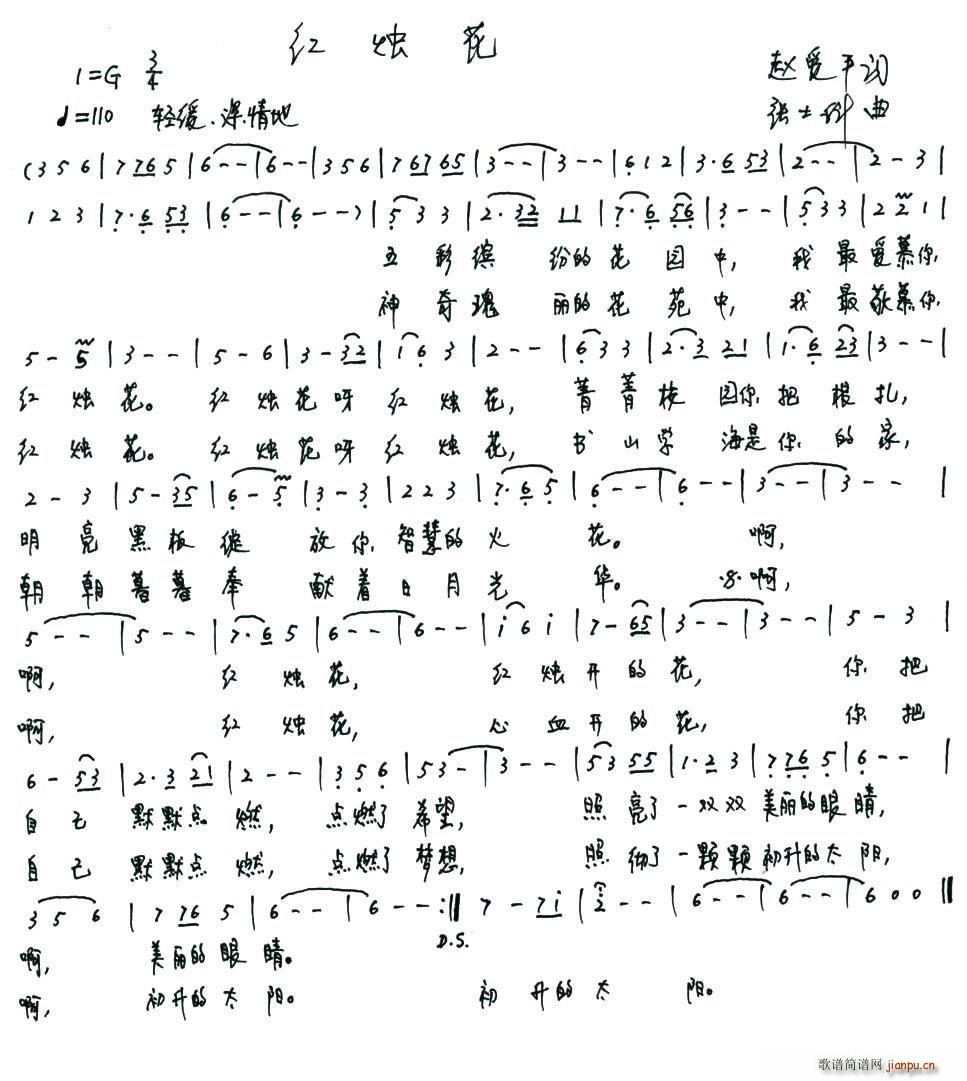 红烛花
1=G 3/4
赵爱平词
♩=110 轻缓、深情地
张士 曲
(3 5 6|7 76 5|6 - -|6 - -|3 5 6|7 67 65|3 - -|3 - -|6 1 2|3·6 53|2 - -|2 - 3|
1 2 3|7·6 53|6 - -|6 - -)|5 3 3|2·32 11|7·6 56|3 - -|5 3 3|2 2 1|
五彩缤 纷的花园中, 我最爱慕你,
神奇瑰 丽的花苑中, 我最敬慕你,
5 - 5|3 - -|5 - 6|3 - 32|1 6 3|2 - -|6 3 3|2·3 21|1·6 23|3 - -|
红烛花。 红烛花呀红烛花, 菁菁校园你把根扎,
红烛花。 红烛花呀红烛花, 书山学海是你的家,
2 - 3|5 - 35|6 - 5|3 - 3|2 2 3|7·6 5|6 - -|6 - -|3 - -|3 - -|
明亮黑板绽放你智慧的火花。 啊,
朝朝暮暮奉献着日月光华。 𝄋 啊,
5 - -|5 - -|7·6 5|6 - -|6 - -|i 6 i|7 - 65|3 - -|3 - -|5 - 3|
啊, 红烛花, 红烛开的花, 你把
啊, 红烛花, 心血开的花, 你把
6 - 53|2·3 21|2 - -|3 5 6|5 3 -|3 - -|5 3 55|1·2 3|7 76 5|6 - -|
自己默默点燃, 点燃了希望, 照亮了一双双美丽的眼睛,
自己默默点燃, 点燃了梦想, 照彻了一颗颗初升的太阳,
3 5 6|7 76 5|6 - -|6 - -:‖7 - 7i|2 - -|6 - -|6 - -|6 0 0‖
D.S.
啊, 美丽的眼睛。
啊, 初升的太阳。 初升的太阳。
歌谱简谱网 jianpu.cn